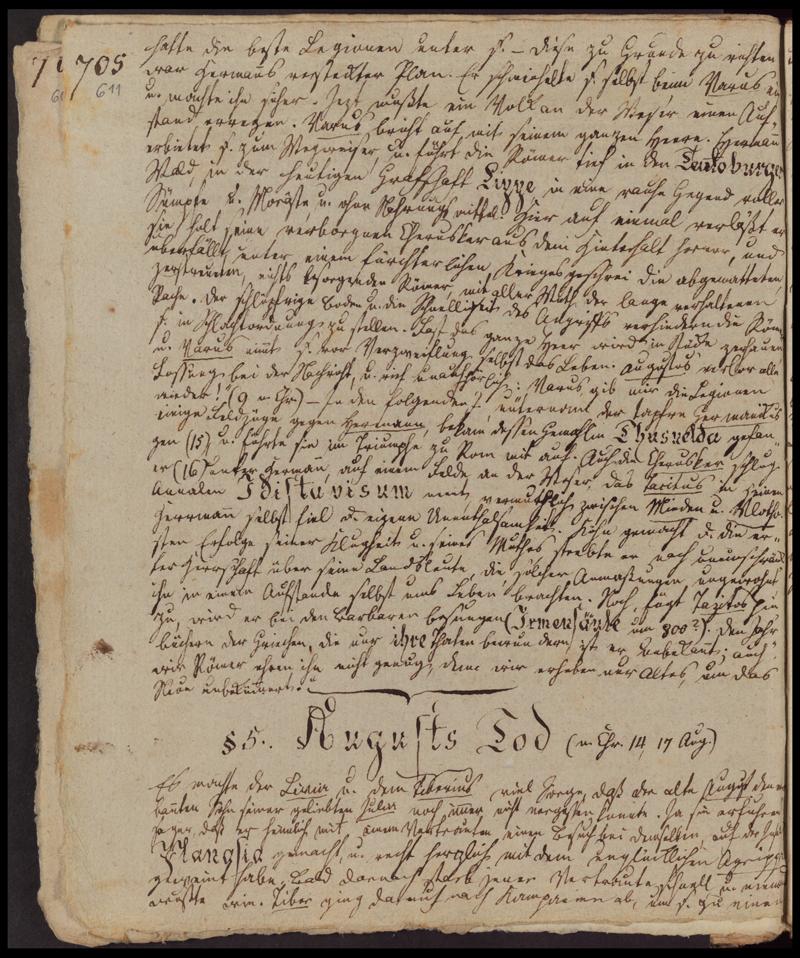 705
611
hatte die beste Legionen unter s. – diese zu Grunde zu richten
war Hermans versteckter Plan. Er schmeichelte s. selbst beim Varus ein
u. machte ihn sicher. Jezt mußte ein Volk an der Weser einen Auf-
stand erregen. Varus bricht auf mit seinem ganzen Heere. Hermann
erbietet s. zum Wegweiser, u. führt die Römer tief in den Teutoburger
Wald, in der heutigen Grafschaft Lippe in eine rauhe Gegend voller
Sümpfe u. Moräste, u. ohne Nahrungsmittel. Hier auf einmal verläßt er
sie, holt seine verborgnen Cherusker aus dem Hinterhalt hervor, und
überfällt unter einem fürchterlichen Kriegsgeschrei die abgematteten,
zerstreuten, nichts besorgenden Römer, mit aller Wuth der lange verhaltenen
Rache. Der schlüpfrige Boden u. die Schnelligkeit des Angriffs verhindern die Römer
s. in Schlachtordnung zu stellen. Fast das ganze Heer wird in Stücke zerhauen
u. Varus nimt s. vor Verzweiflung selbst das Leben. Augustus verlor alle
Fassung bei der Nachricht, u. rief unaufhörlich: Varus, gib mir die Legionen
wieder! (9 n. Chr.) – In den folgenden J. unternam der tapfre Germanikus
einige Feldzüge gegen Hermann, bekam dessen Gemahlin Thusnelda gefan-
gen (15) u. führte sie im Triumphe zu Rom mit auf. Auch die Cherusker schlug
er (16) unter Hermann, auf einem Felde an der Weser, das Tacitus in seinen
Annalen Idistavisum nent, vermuthlich zwischen Minden u. Vlotho.
Herrmann selbst fiel d. eigene Unenthaltsamkeit. Kühn gemacht d. die er-
sten Erfolge seiner Klugheit u. seines Muthes strebte er nach unumschränk-
ter Herrschaft über seine Landsleute, die, solcher Anmaßungen ungewohnt
ihn in einem Aufstande selbst ums Leben brachten. Noch, sagt Tazitos hin-
zu, wird er bei den Barbaren besungen (Irmensäule im 800?). Den Jahr-
büchern der Griechen, die nur ihre thaten bewundern, ist er unbekant; auch
wir Römer ehren ihn nicht genug, denn wir erheben nur Altes, um das
Neue unbekümert.
§ 5. Augusts Tod (n. Chr. 14, 17 Aug.)
Es machte der Livia u. dem Tiberius viel Sorge, daß der alte August den ver-
banten Sohn seiner geliebten Julia noch imer nicht vergessen konnte. Ja sie erfuhren
sogar, daß er heimlich mit einem Vertrauten einen Besuch bei demselben, auf der Insel
Planasia gemacht, u. recht herzlich mit dem unglücklichen Agrippa
geweint habe. Bald darnach starb jener Vertraute schnell u. niemand
wußte wie. Tiber ging darauf nach Kampanien ab, um s. zu einem